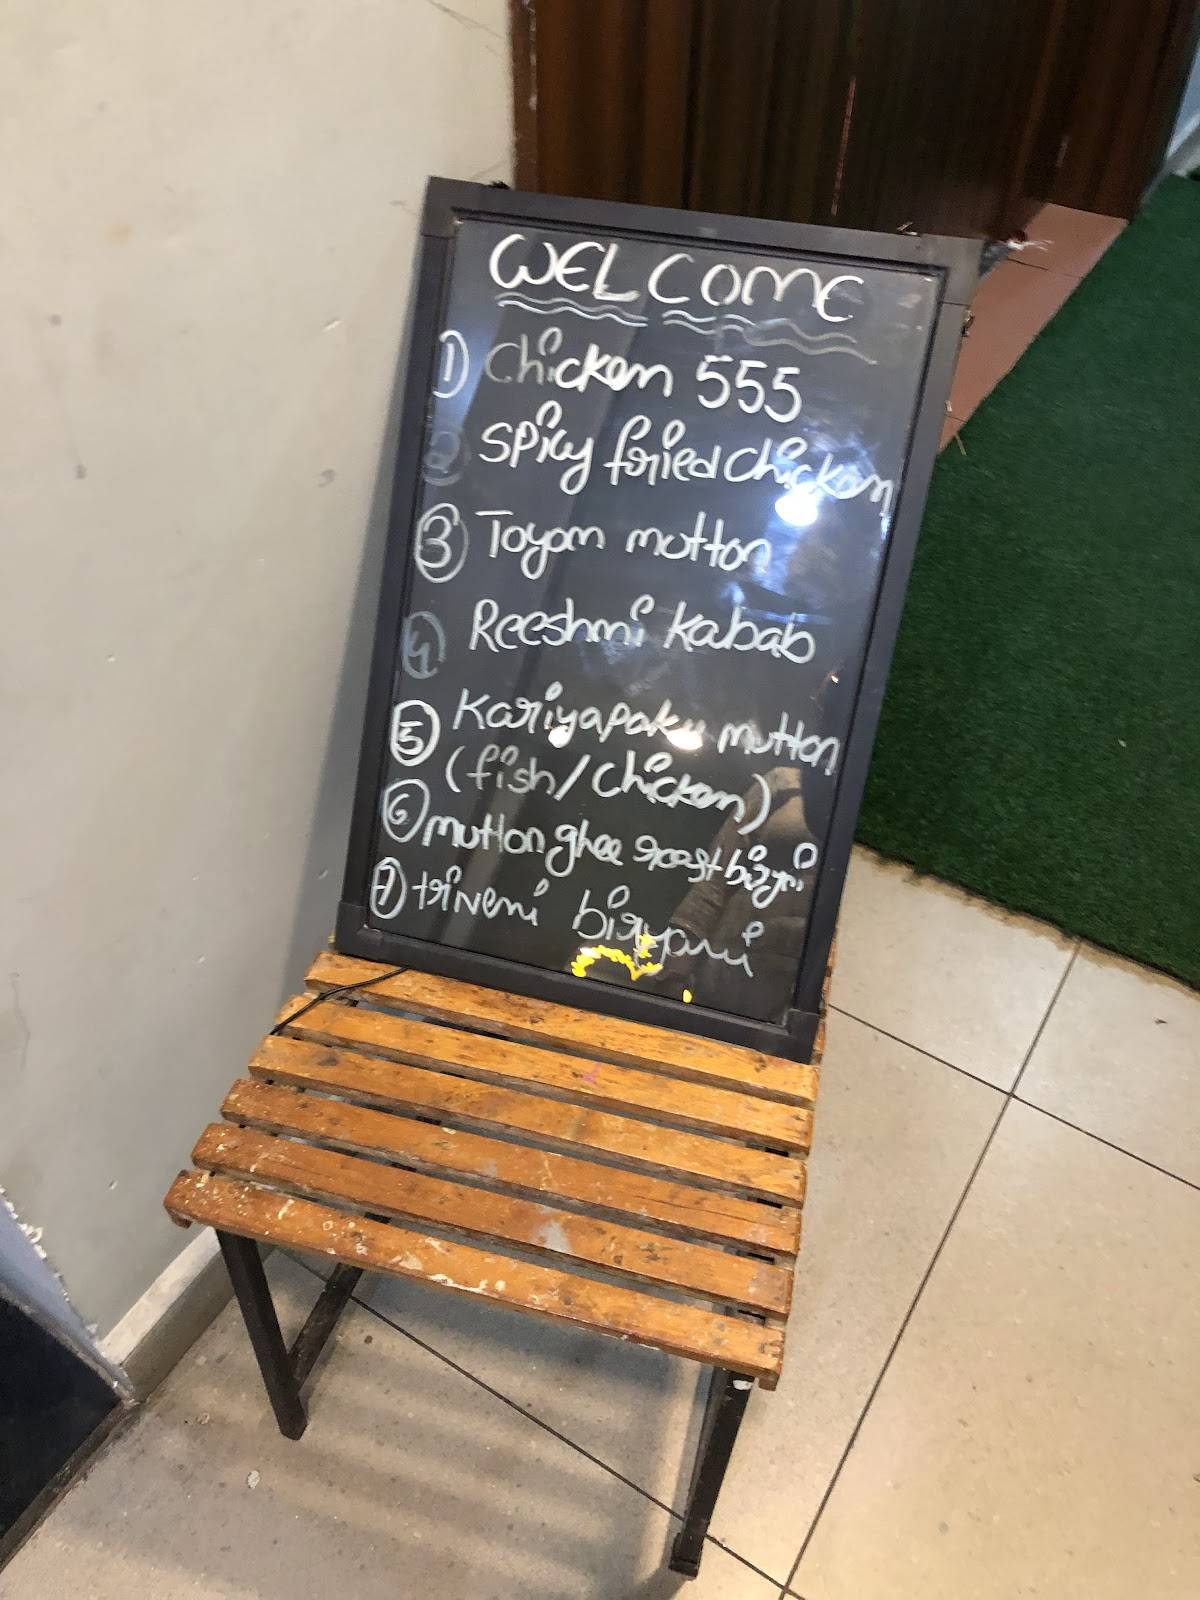 WELCOME
① Chicken 555
② Spicy fried chicken
③ Toyom mutton
④ Reeshmi kabab
⑤ Kariyapaku mutton
(fish/chicken)
⑥ mutton ghee roast
⑦ triveni biryani